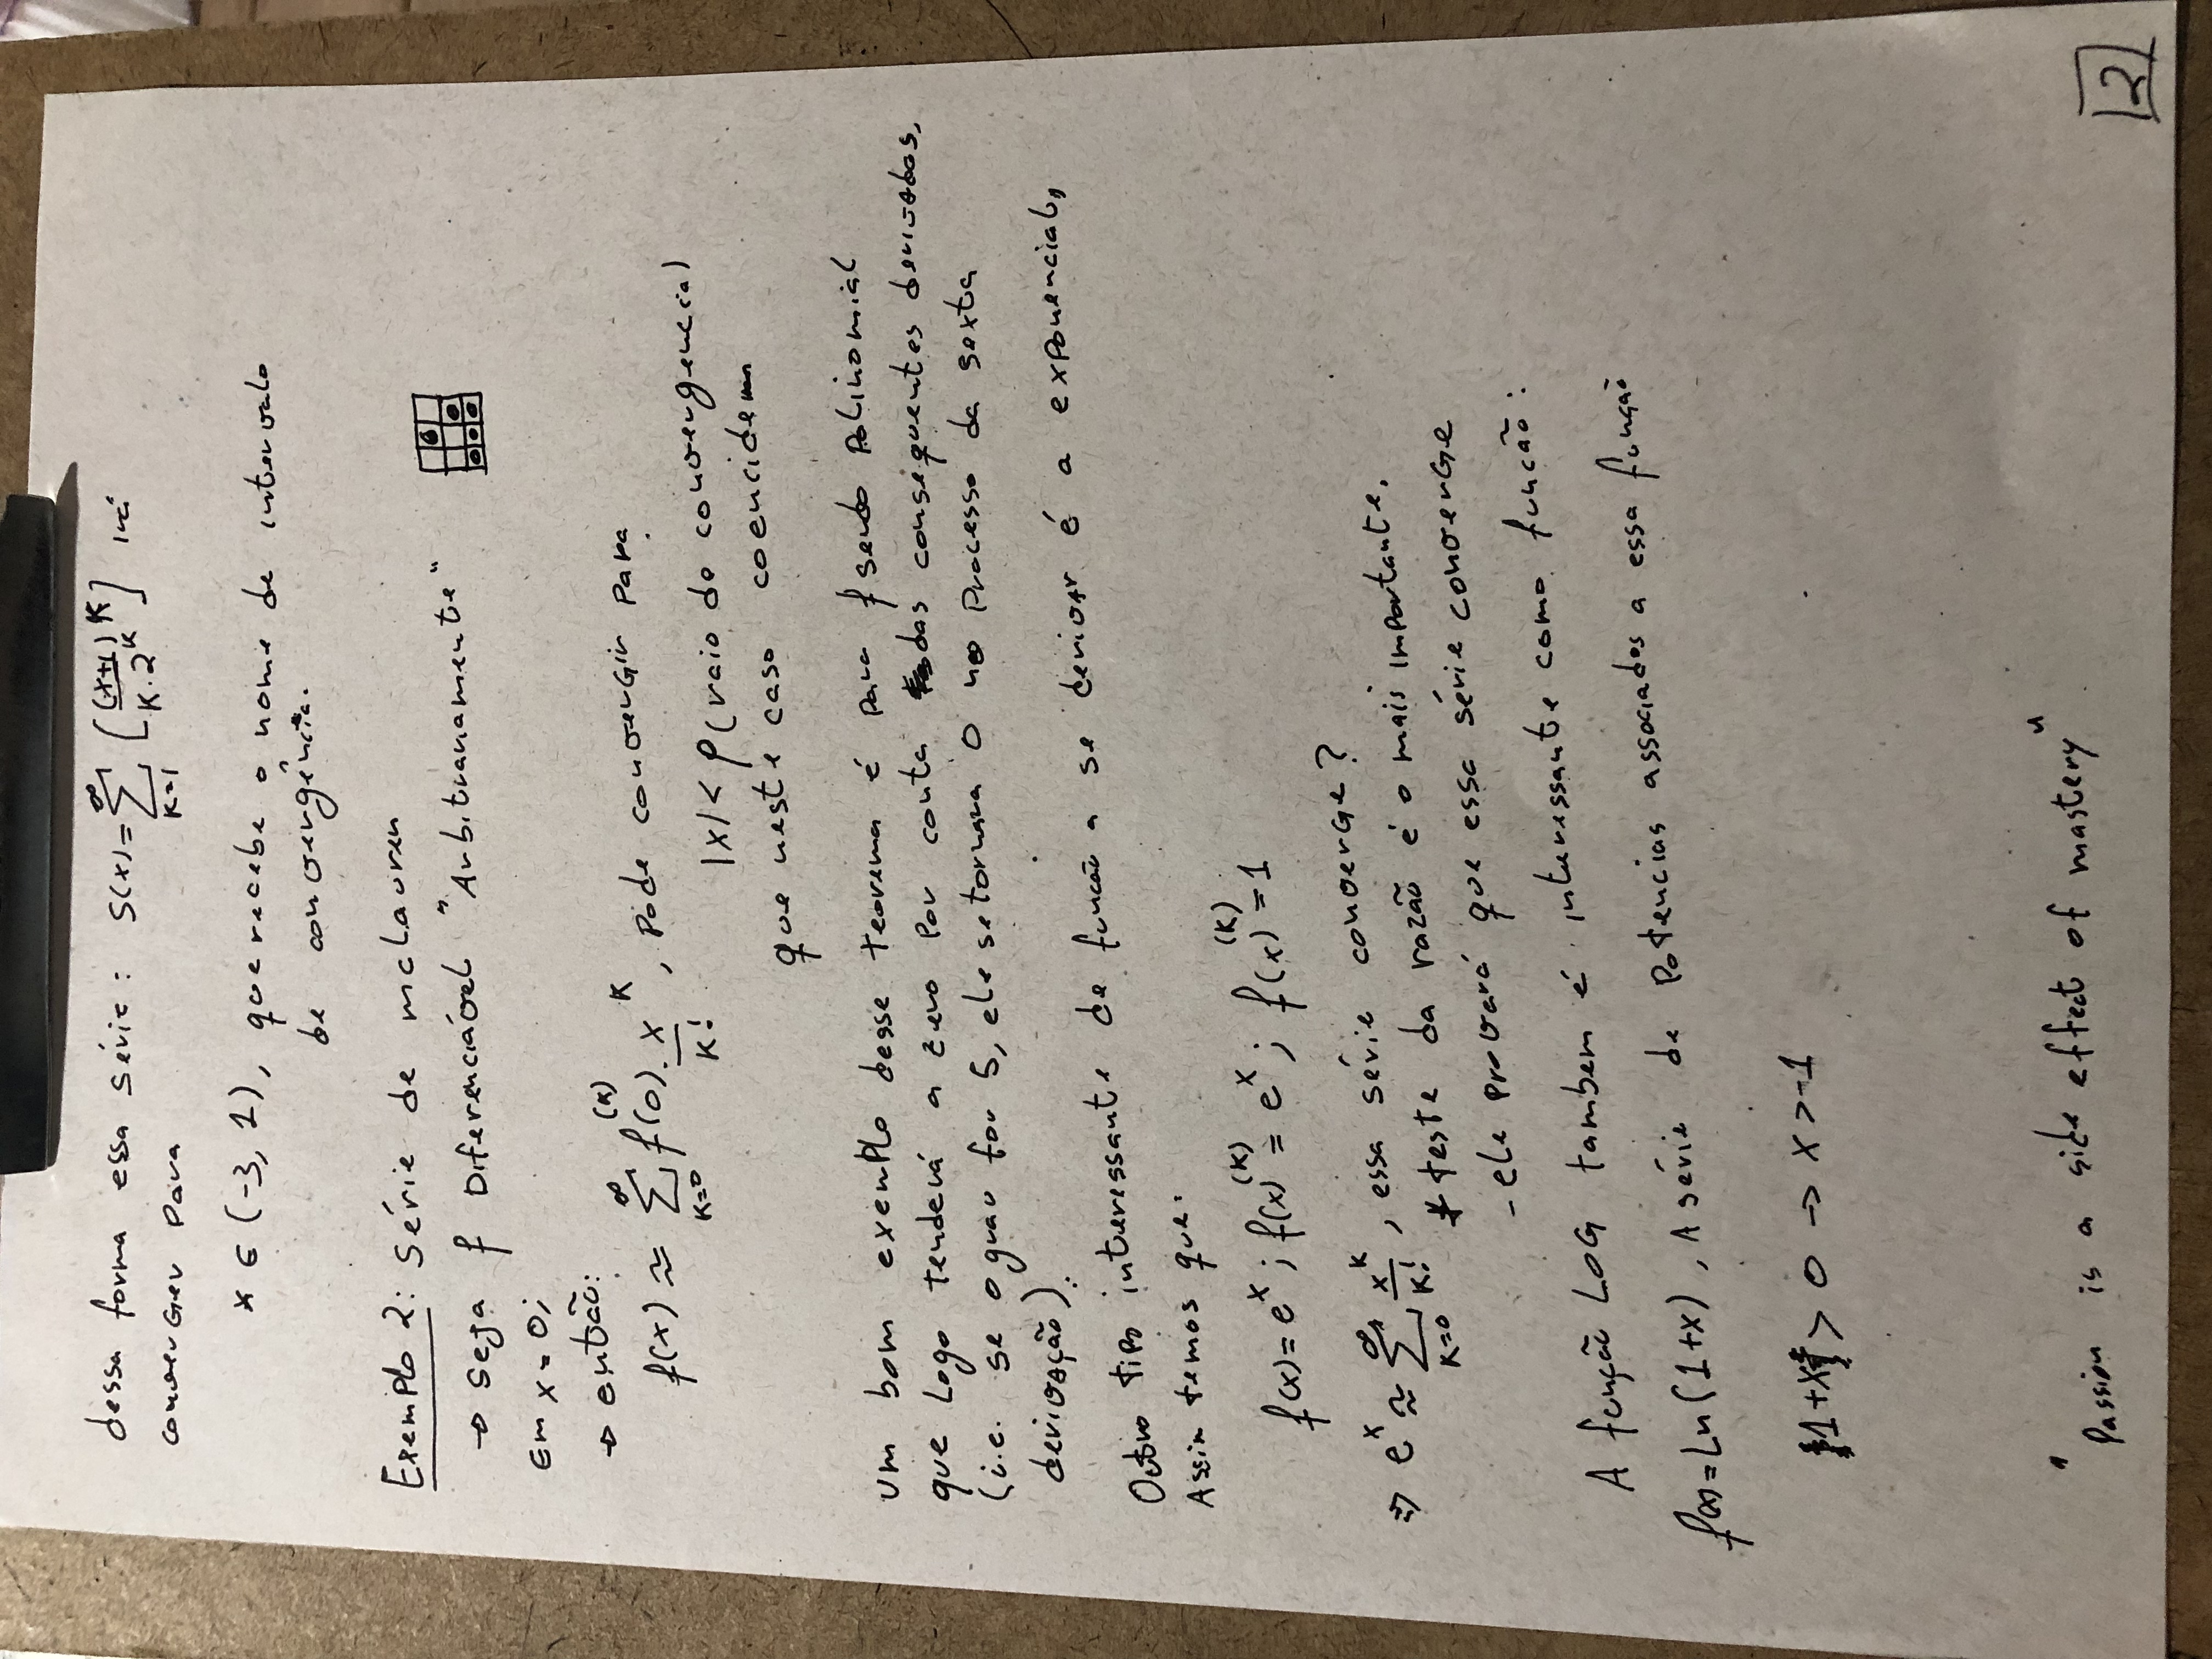 dessa forma essa série: S(x)=∑_{K=1}^{∞} [(x+1)^K / K.2^K] irá
converger para
x ∈ (-3, 1), que recebe o nome de intervalo
de convergência.
Exemplo 2: Série de mcLauren
→ Seja f Diferenciável "Arbitrariamente"
Em x = 0;
→ então:
f(x) ≈ ∑_{K=0}^{∞} f(0)^{(K)} . x^K / K! , pode convergir para
|x| < ρ (raio de convergencia)
que neste caso coencidem
um bom exemplo desse teorema é para f sendo polinomial
que logo tenderá a zero por conta das consequentes derivadas,
(i.e. se o grau for 5, ele se tornara 0 no processo da sexta
derivação).
Outro tipo interessante de funcão a se derivar é a exponencial,
Assim temos que:
f(x)=e^x ; f(x)^{(K)} = e^x ; f(x)^{(K)} = 1
⇒ e^x ≈ ∑_{K=0}^{∞} x^K / K! , essa série converge?
* teste da razão é o mais importante.
- ele provará que essa série converge
A função LOG tambem é interessante como funcão:
f(x)=Ln(1+x), A série de potencias associados a essa função
1+x > 0 → x > -1
"Passion is a side effect of mastery"
2